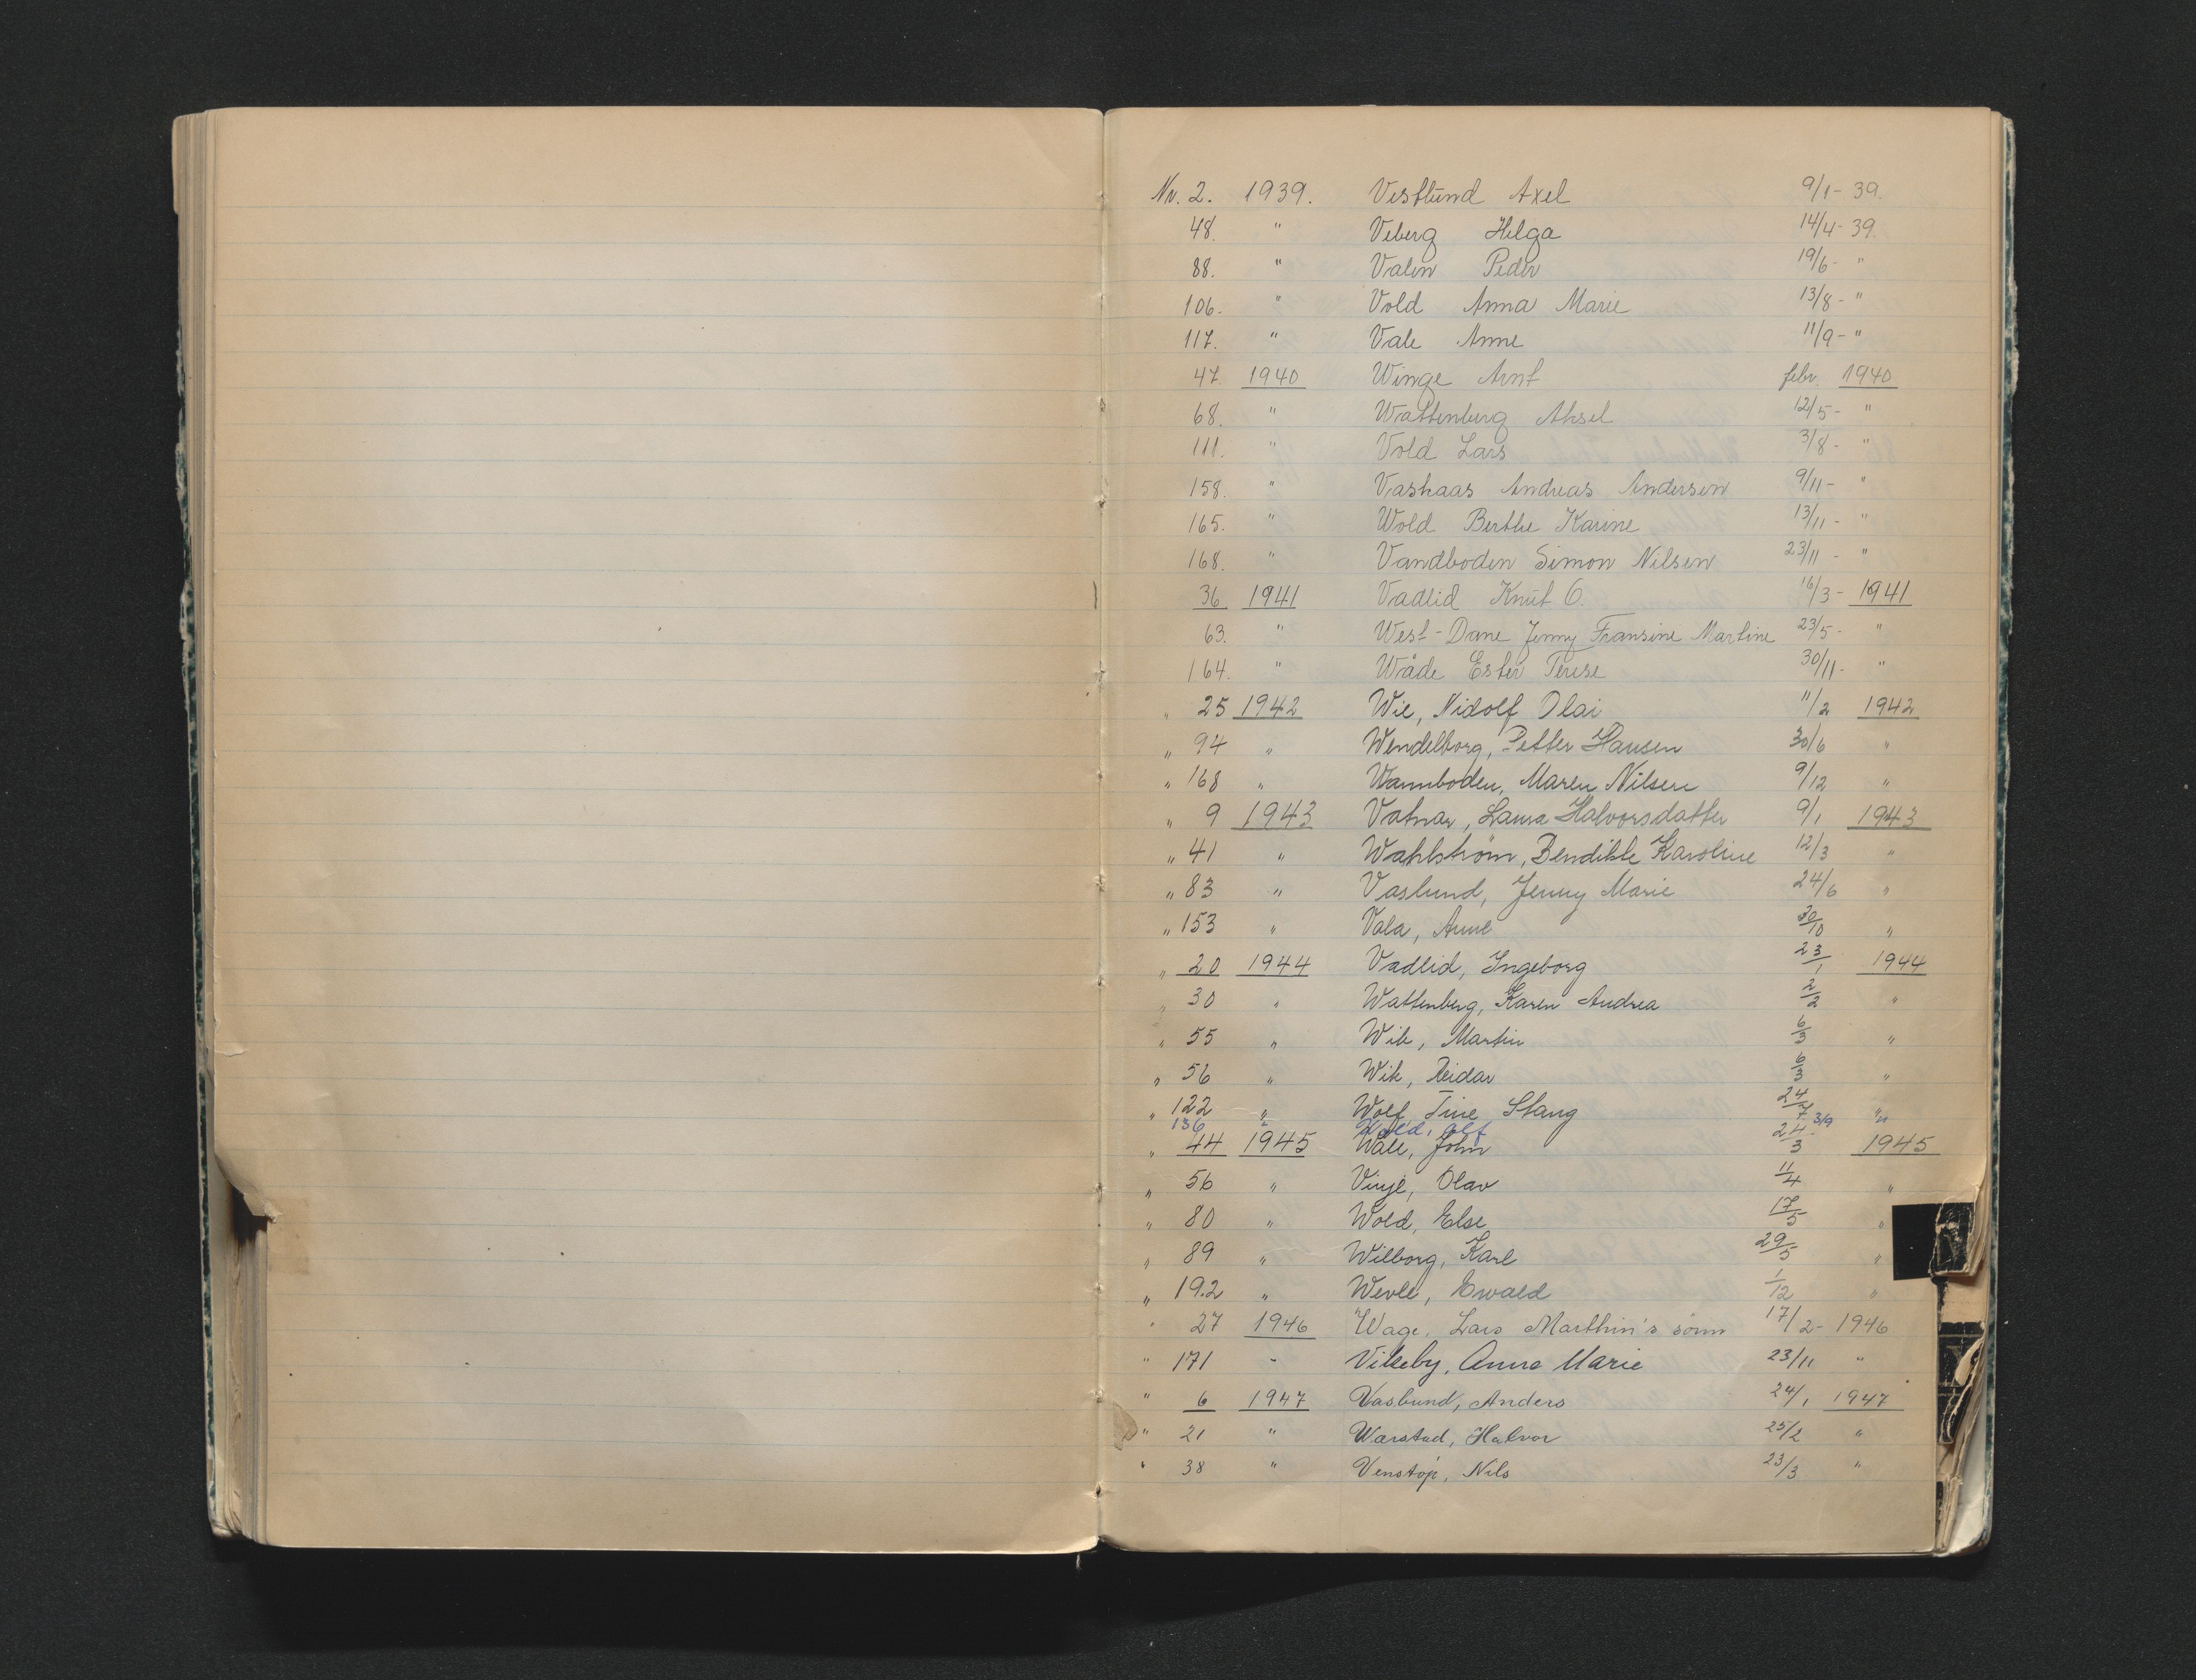 Nr. 2. 1939. Vestlund Axel 9/1- 39.
48. " Veberg Helga 14/4- 39.
88. " Valen Peder 19/6- "
106. " Vold Anna Marie 13/8- "
117. " Vale Anne 11/9- "
47 1940 Winge Arnt febr. 1940
68. " Wattenberg Aksel 12/5- "
111. " Vold Lars 3/8- "
158. " Vashaas Andreas Andersen 9/11- "
165. " Wold Berthe Karine 13/11- "
168. " Vandboden Simon Nilsen 23/11- "
36 1941 Vadlid Knut O. 16/3- 1941
63. " West-Dane Jenny Fransine Martine 23/5- "
164. " Wåde Ester Terese 30/11- "
" 25 1942 Wie, Nidolf Olai 11/2 1942
" 94 " Wendelborg, Petter Hansen 30/6 "
" 168 " Wannboden, Maren Nilsen 9/12 "
" 9 1943 Vatnar, Laura Halvorsdatter 9/1 1943
" 41 " Wahlstrøm, Bendikte Karoline 12/3 "
" 83 " Vaslund, Jenny Marie 24/6 "
" 153 " Vala, Anne /10 "
" 20 1944 Vadlid, Ingeborg 23/1 1944
" 30 " Wattenberg, Karen Andrea 2/2 "
" 55 " Wik, Martin 6/3 "
" 56 " Wik, Reidar 6/3 "
" 122 " Wolf Tine Stang 24/7 "
136 " Wold, Alf 3/9 "
" 44 1945 Wale, John 24/3 1945
" 56 " Vinje, Olav 11/4 "
" 80 " Wold, Else 17/5 "
" 89 " Wilborg, Karl 29/5 "
" 192 " Wevle, Ewald 1/12 "
" 27 1946 Wage, Lars Marthin's sønn 17/2- 1946
" 171 - Villeby, Anna Marie 23/11 "
" 6 1947 Vaslund, Anders 24/1 1947
" 21 " Warstad, Halvor 25/2 "
" 38 " Venstøp, Nils 23/3 "